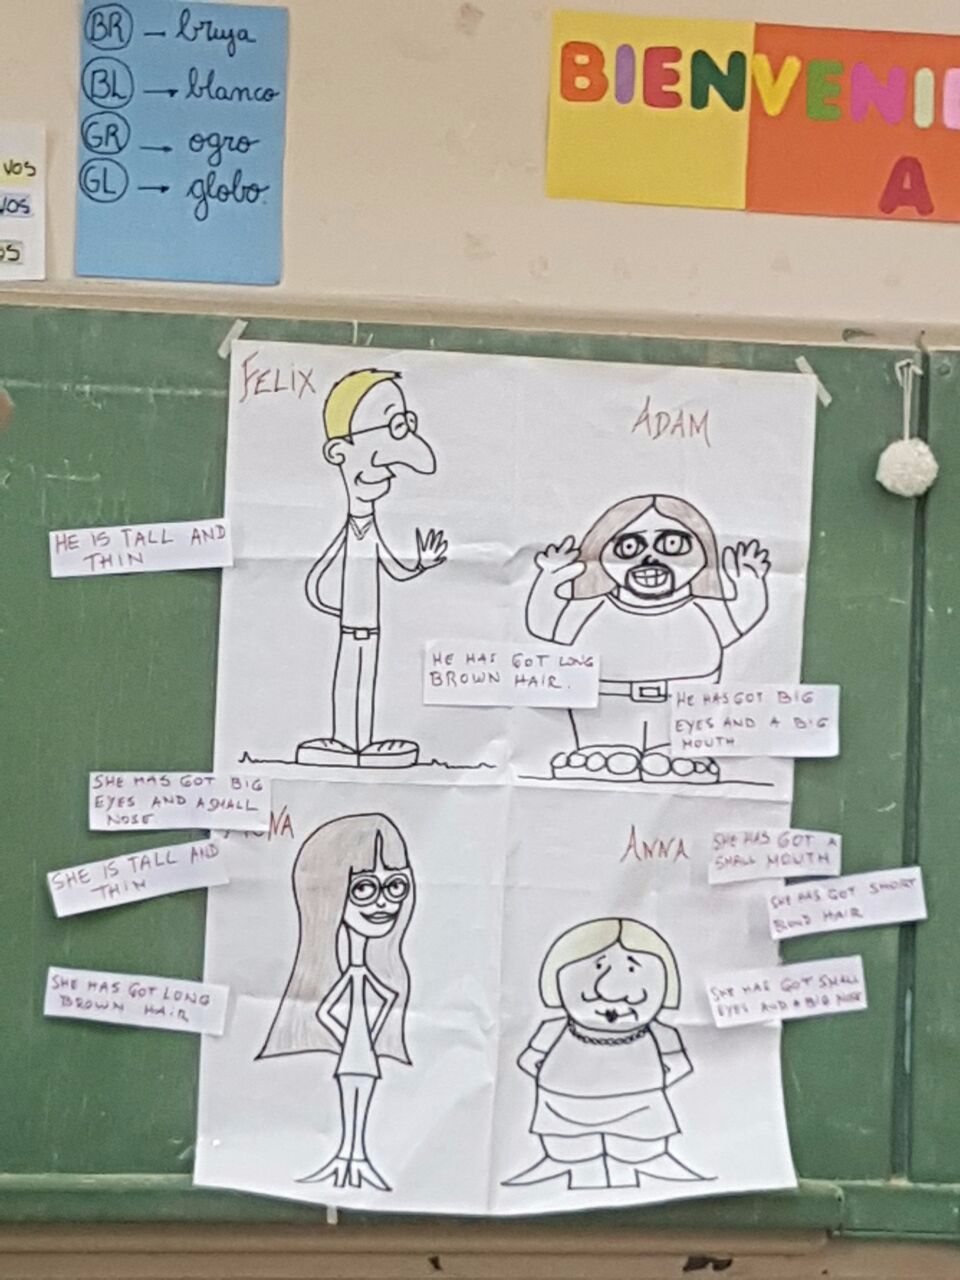 BR → bruja
BL → blanco
GR → ogro
GL → globo.
VOS
VOS
OS
BIENVENI
A
FELIX
ADAM
HE IS TALL AND
THIN
HE HAS GOT LONG
BROWN HAIR.
HE HAS GOT BIG
EYES AND A BIG
MOUTH
SHE HAS GOT BIG
EYES AND A SMALL
NOSE.
NA
ANNA
SHE IS TALL AND
THIN
SHE HAS GOT LONG
BROWN HAIR
SHE HAS GOT A
SMALL MOUTH
SHE HAS GOT SHORT
BLOND HAIR
SHE HAS GOT SMALL
EYES AND A BIG NOSE